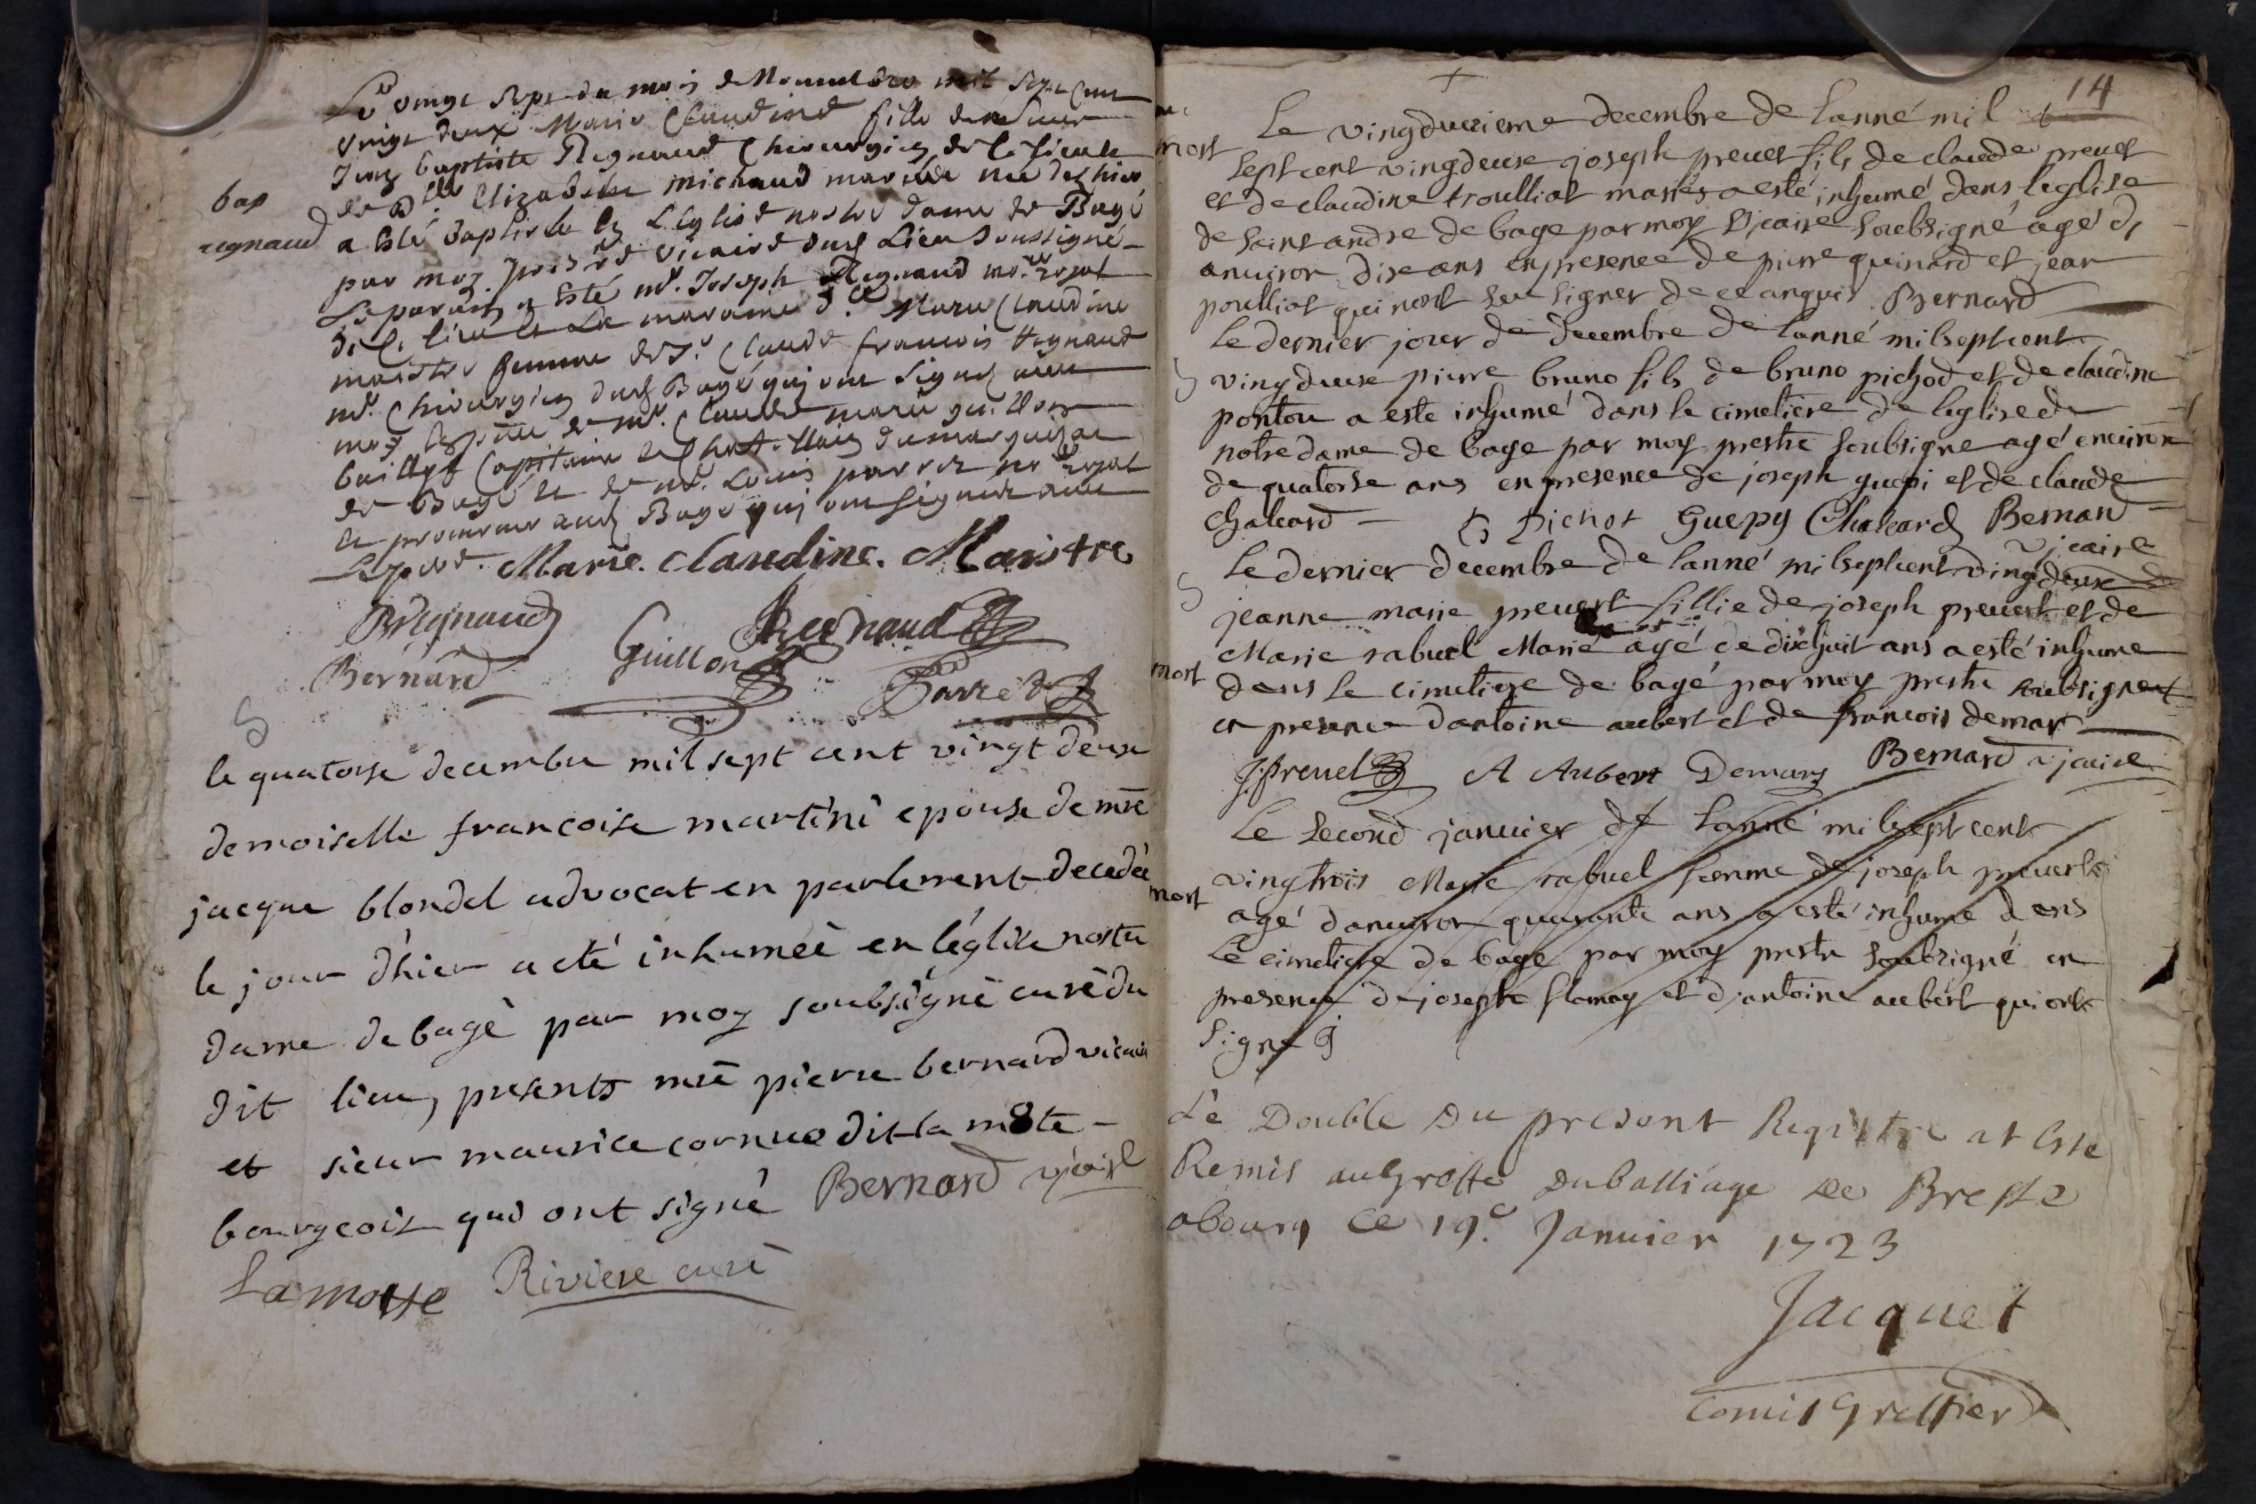 Le vingt sept du mois de Novembre mil sept cent
vingt deux Marie Claudine fille de sieur
Jean baptiste Regnaud Chirurgien et
de Dlle Elizabeth michaud mariés née dez hier
bap
regnaud
a esté baptisée en L'Eglise nostre dame de Bagé
par moy vicaire dud Lieu soussigné
Le parain a esté mr. Joseph Regnaud no.re royal
et La maraine d.e Marie Claudine
maistre femme de Sr. Claude francois Regnaud
mr. Chirurgien dud Bagé qui ont signé avec
moy de mr. Claude marie guillon
baillyf Capitaine et Chastellain du marquisat
de Bagé et de mr. Louis parret no.re royal
et procureur aud Bagé qui ont signé avec
Marie. Claudine. Maistre
Regnaud
Regnaud
Guillon
Bernard
Parret
le quatorse decembre mil sept cent vingt deux
demoiselle francoise martini epouse de mre
jacque blondel advocat en parlement decedée
le jour d'hier a eté inhumée en l'église nostre
dame de bagé par moy soubsigné curé du
dit lieu, presents mre pierre bernard vicaire
et sieur maurice cornuo dit la mote
bourgeois qui ont signé Bernard vicaire
La motte Riviere curé
14
Le vingdeuxieme decembre de lanné mil
mort
sept cent vingdeuse joseph prevet fils de claude prevet
et de claudine troulliat mariés a esté inhumé dans leglise
de saint andre de bage par moy vicaire soubsigné agé de
anviron dix ans en presence de pierre guinard et jean
poulliat qui nont seu signer de ce anquis Bernard
Le dernier jour de decembre de lanné mil sept cent
vingdeuse pierre bruno fils de bruno pichod et de claudine
pontou a este inhumé dans le cimetière de leglise de
notre dame de bage par moy prestre soubsigne agé enviren
de quatorse ans en presence de joseph guepi et de claude
chaleard Pichot Guepy Chaleard Bernard
vicaire
Le dernier decembre de lanné mil sept cent vingdeuse
jeanne marie prevert fillie de joseph prevert et de
Marie rabuel Marie agé de dixhuit ans a esté inhume
mort
dans le cimetiere de bagé par moy prestre soubsigne et
en presence dantoine aubert et de francois demar
J. prevel A Aubert Demars Bernard vicaire
Le second janvier de lanné mil sept cent
vingtrois Marie rabuel femme de joseph prevert
mort
agé danviron quarante ans a esté inhume dans
Le cimetiere de bage par moy prestre soubsigné en
presence de joseph flamay et d'antoine aubert qui ont
signe
Le Double Du present Registre at Este
Remis au greffe du balliage de Bresse
abourg ce 19e. Janvier 1723
Jacquet
Comis greffier